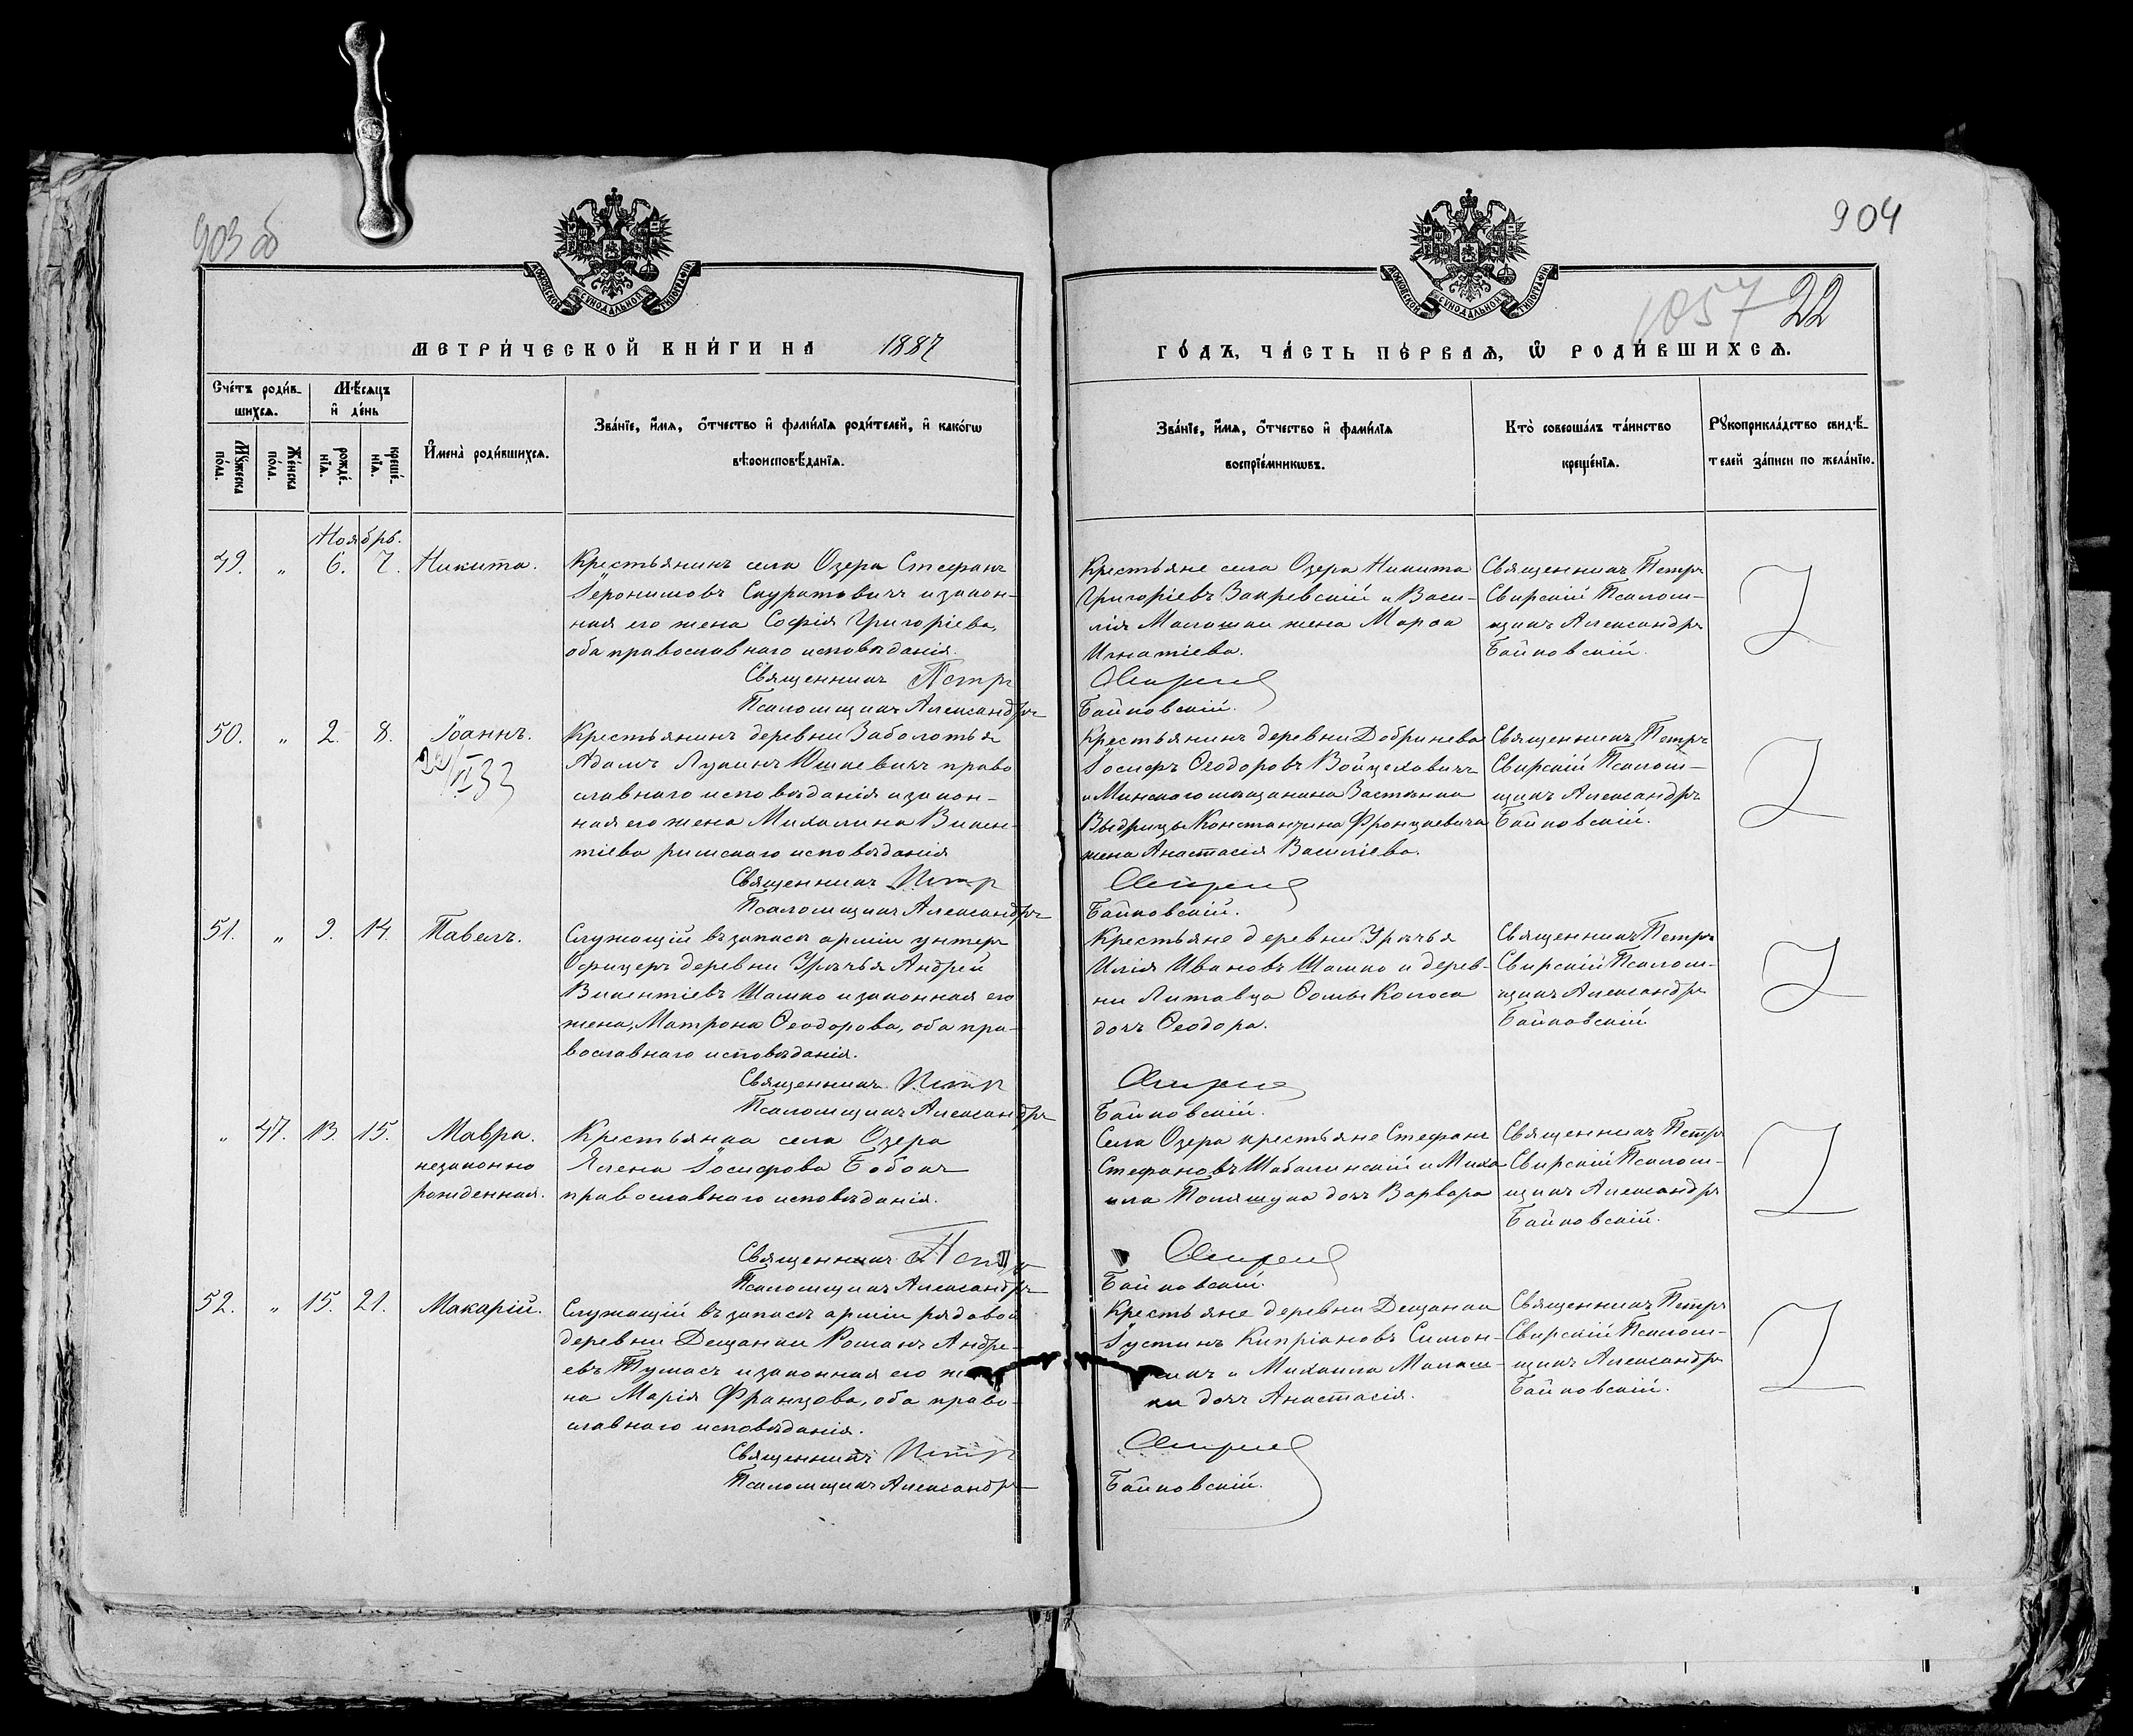 903 об
904
1057 22
МОСКОВСКОЙ СѴНОДАЛЬНОЙ ТИПОГРАФІИ
МОСКОВСКОЙ СѴНОДАЛЬНОЙ ТИПОГРАФІИ
МЕТРИ́ЧЕСКОЙ КНИ́ГИ НА 1887
ГО́ДЪ, ЧА́СТЬ ПЕ́РВАЯ, Ѽ РОДИ́ВШИХСЯ.
Сче́тъ роди́в-
шихся.
Мѣ́сяцъ
и҆ де́нь
Му́жеска по́ла.
Же́нска по́ла.
рожде́нїя.
креще́нїя.
И҆мена̀ роди́вшихся.
Зва́нїе, и҆́мя, ѻ҆́тчество и҆ фами́лїя роди́телей, и҆ како́гѡ
вѣроисповѣ́данїя.
Зва́нїе, и҆́мя, ѻ҆́тчество и҆ фами́лїя
воспрїе́мникѡвъ.
Кто̀ соверша́лъ та́инство
креще́нїя.
Рꙋкоприкла́дство свидѣ́-
телей за́писи по жела́нїю.
Ноябрь.
49. „ 6. 7. Никита.
Крестьянинъ села Озера Стефанъ
Іеронимовъ Скуратовичъ и закон-
ная его жена Софія Григоріева,
оба православнаго исповѣданія.
Священникъ Петръ
Псаломщикъ Александръ
Крестьяне села Озера Никита
Григоріевъ Закревскій и Васи-
лія Малашки жена Марѳа
Игнатіева.
Свирскій
Байковскій.
Священникъ Петръ
Свирскій Псалом-
щикъ Александръ
Байковскій.
50. „ 2. 8. Іоаннъ.
Крестьянинъ деревни Заболотья
Адамъ Лукинъ Юшкевичъ право
славнаго исповѣданія и закон-
ная его жена Михалина Викен-
тіева римскаго исповѣданія
Священникъ Петръ
Псаломщикъ Александръ
Крестьянинъ деревни Добринева
Іосифъ Ѳеодоровъ Войцеховичъ
и Минскаго мѣщанина Застѣнка
Выдрицы Константина Францкевича
жена Анастасія Василіева.
Свирскій
Байковскій.
Священникъ Петръ
Свирскій Псалом-
щикъ Александръ
Байковскій.
51. „ 9. 14. Павелъ.
Служащій въ запасѣ арміи унтеръ
Офицеръ деревни Урѣчья Андрей
Викентіевъ Шашко и законная его
жена, Матрона Ѳеодорова, оба пра-
вославнаго исповѣданія.
Священникъ Петръ
Псаломщикъ Александръ
Крестьяне деревни Урѣчья
Илія Ивановъ Шашко и дерев-
ни Литавца Ѳомы Колоса
дочь Ѳеодора.
Свирскій
Байковскій.
Священникъ Петръ
Свирскій Псалом-
щикъ Александръ
Байковскій
„ 47. 13. 15. Мавра.
незаконно
рожденная.
Крестьянка села Озера
Елена Іосифова Бобокъ
православнаго исповѣданія.
Священникъ Петръ
Псаломщикъ Александръ
Села Озера крестьяне Стефанъ
Стефановъ Шабалинскій и Миха
ила Полящука дочь Варвара
Свирскій
Байковскій.
Священникъ Петръ
Свирскій Псалом-
щикъ Александръ
Байковскій.
52. „ 15. 21. Макарій.
Служащій въ запасѣ арміи рядовой
деревни Дещанки Романъ Андре-
евъ Тумасъ и законная его же
на Марія Францова, оба право-
славнаго исповѣданія.
Священникъ Петръ
Псаломщикъ Александръ
Крестьяне деревни Дещанки
Іустинъ Кипріановъ Симон-
и Михаила Малаш-
ки дочь Анастасія.
Свирскій
Байковскій.
Священникъ Петръ
Свирскій Псалом-
щикъ Александръ
Байковскій.